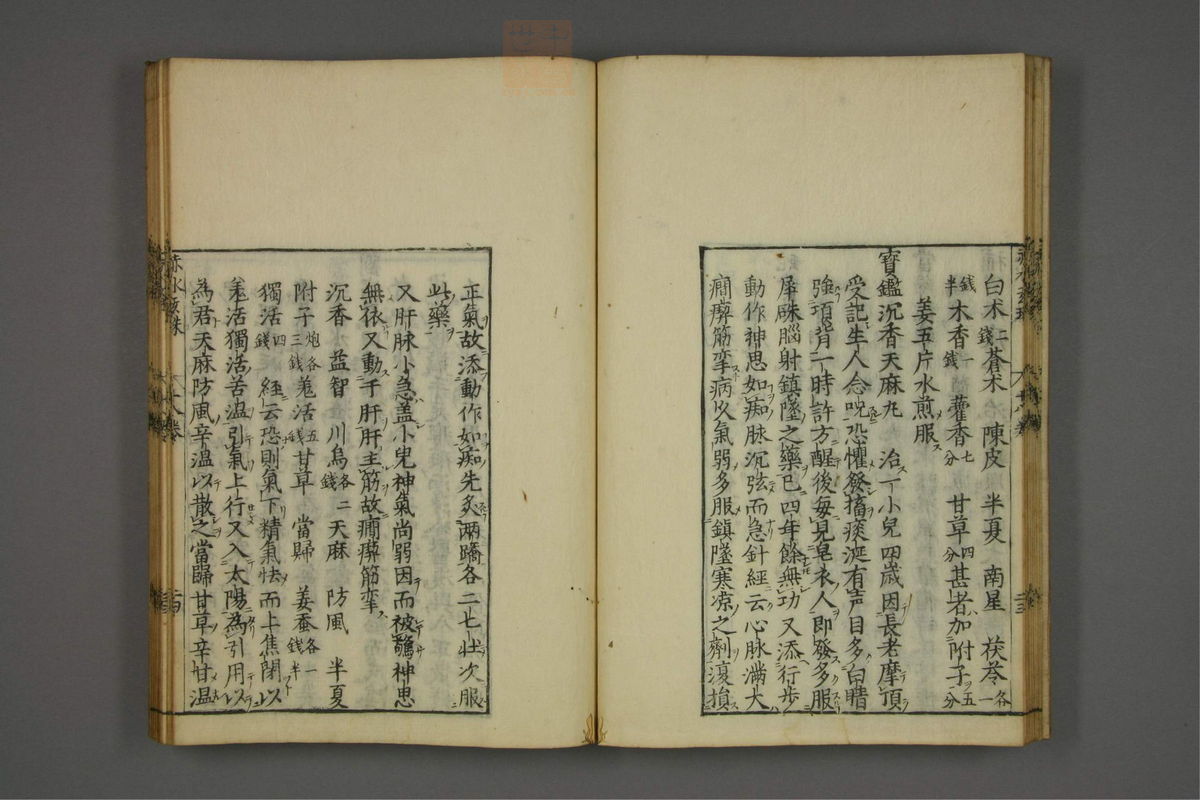 白朮二錢蒼朮 陳皮 半夏 南星 茯苓各一
錢半木香一錢 藿香七分 甘草四分甚者加附子五分
姜五片水煎服
寶鑑沉香天麻丸 治一小兒四歲因長老摩頂
受記生人念呪恐懼發搐痰涎有声目多白睛
強項背一時許方醒後每見皂衣人即發多服
犀硃腦射鎮墜之藥已四年餘無功又添行步
動作神思如痴脉沉弦而急針經云心脉滿大
癎瘈筋挛病久氣弱多服鎮墜寒凉之劑復損
正氣故添動作如痴先炙兩蹻各二七壮次服
此藥
又肝脉小急盖小兒神氣尚弱因而被驚神思
無依又動于肝肝主筋故癎瘈筋挛
沉香 益智 川烏各二錢天麻 防風 半夏
附子炮各三錢羗活五錢甘草 當歸 姜蚕各一錢半
獨活四錢 經云恐則氣下精氣怯而上焦閉以
羗活獨活苦温引氣上行又入太陽為引用以
為君天麻防風辛温以散之當歸甘草辛甘温
赤水玄珠
八卷